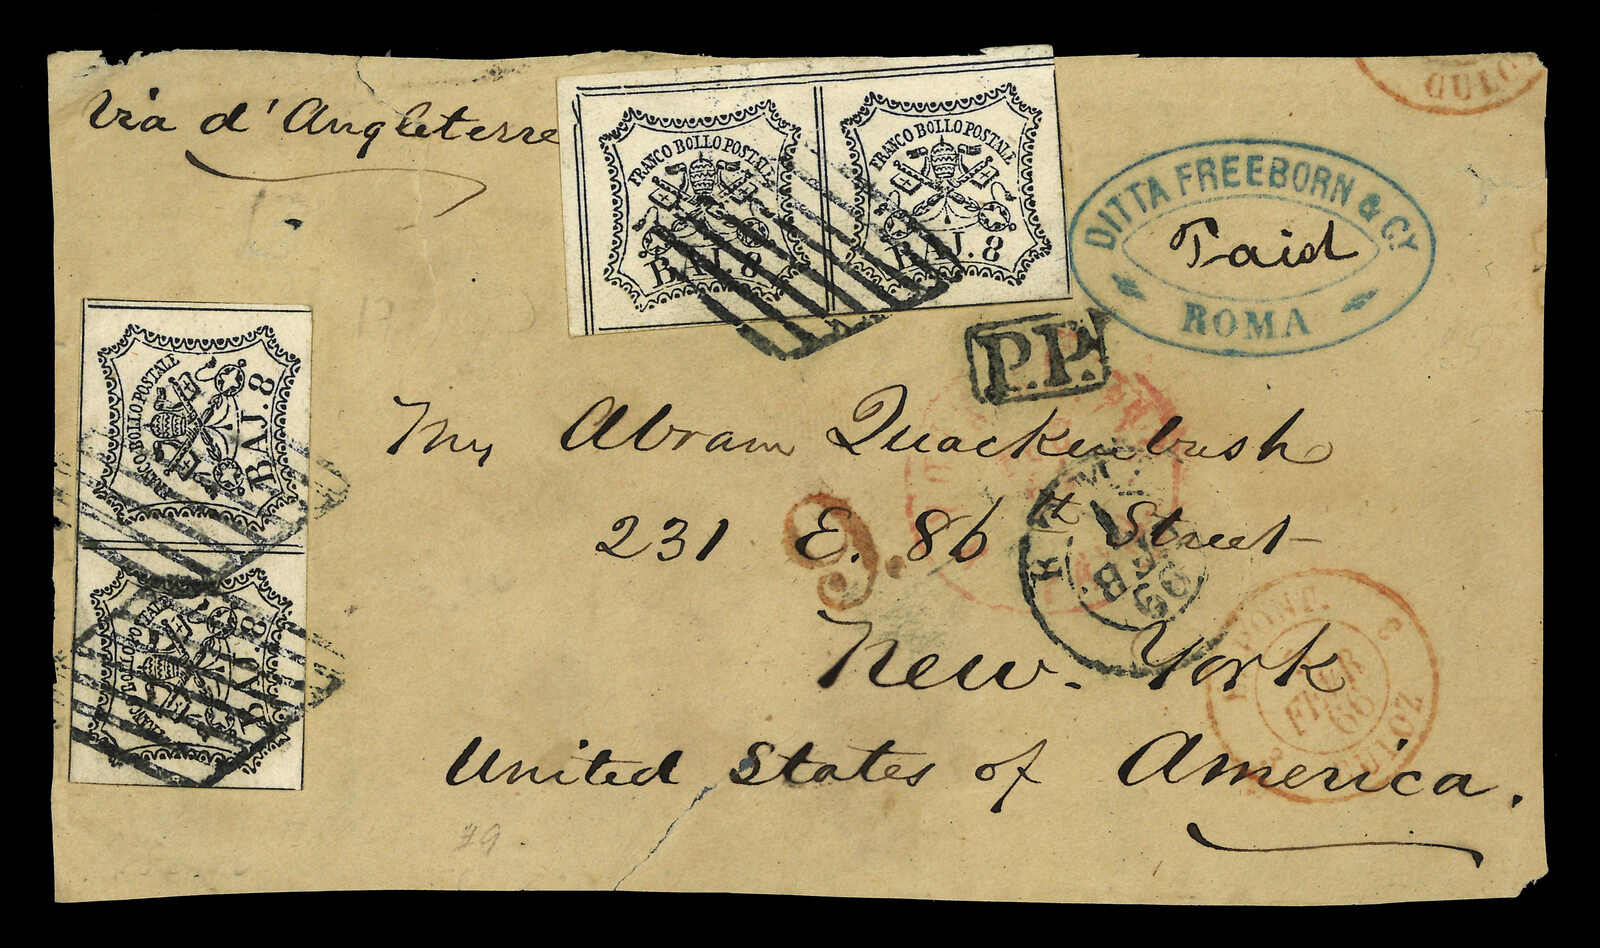 Via d'Angleterre
FRANCO BOLLO POSTALE
BAJ. 8
FRANCO BOLLO POSTALE
BAJ. 8
DITTA FREEBORN & CY
Paid
ROMA
P.P.
FRANCO BOLLO POSTALE
BAJ. 8
FRANCO BOLLO POSTALE
BAJ. 8
Mr Abram Quackenbush
231 E. 86th Street
9.
New-York
United States of America.
E. PONT.
FEVR
66
CULOZ